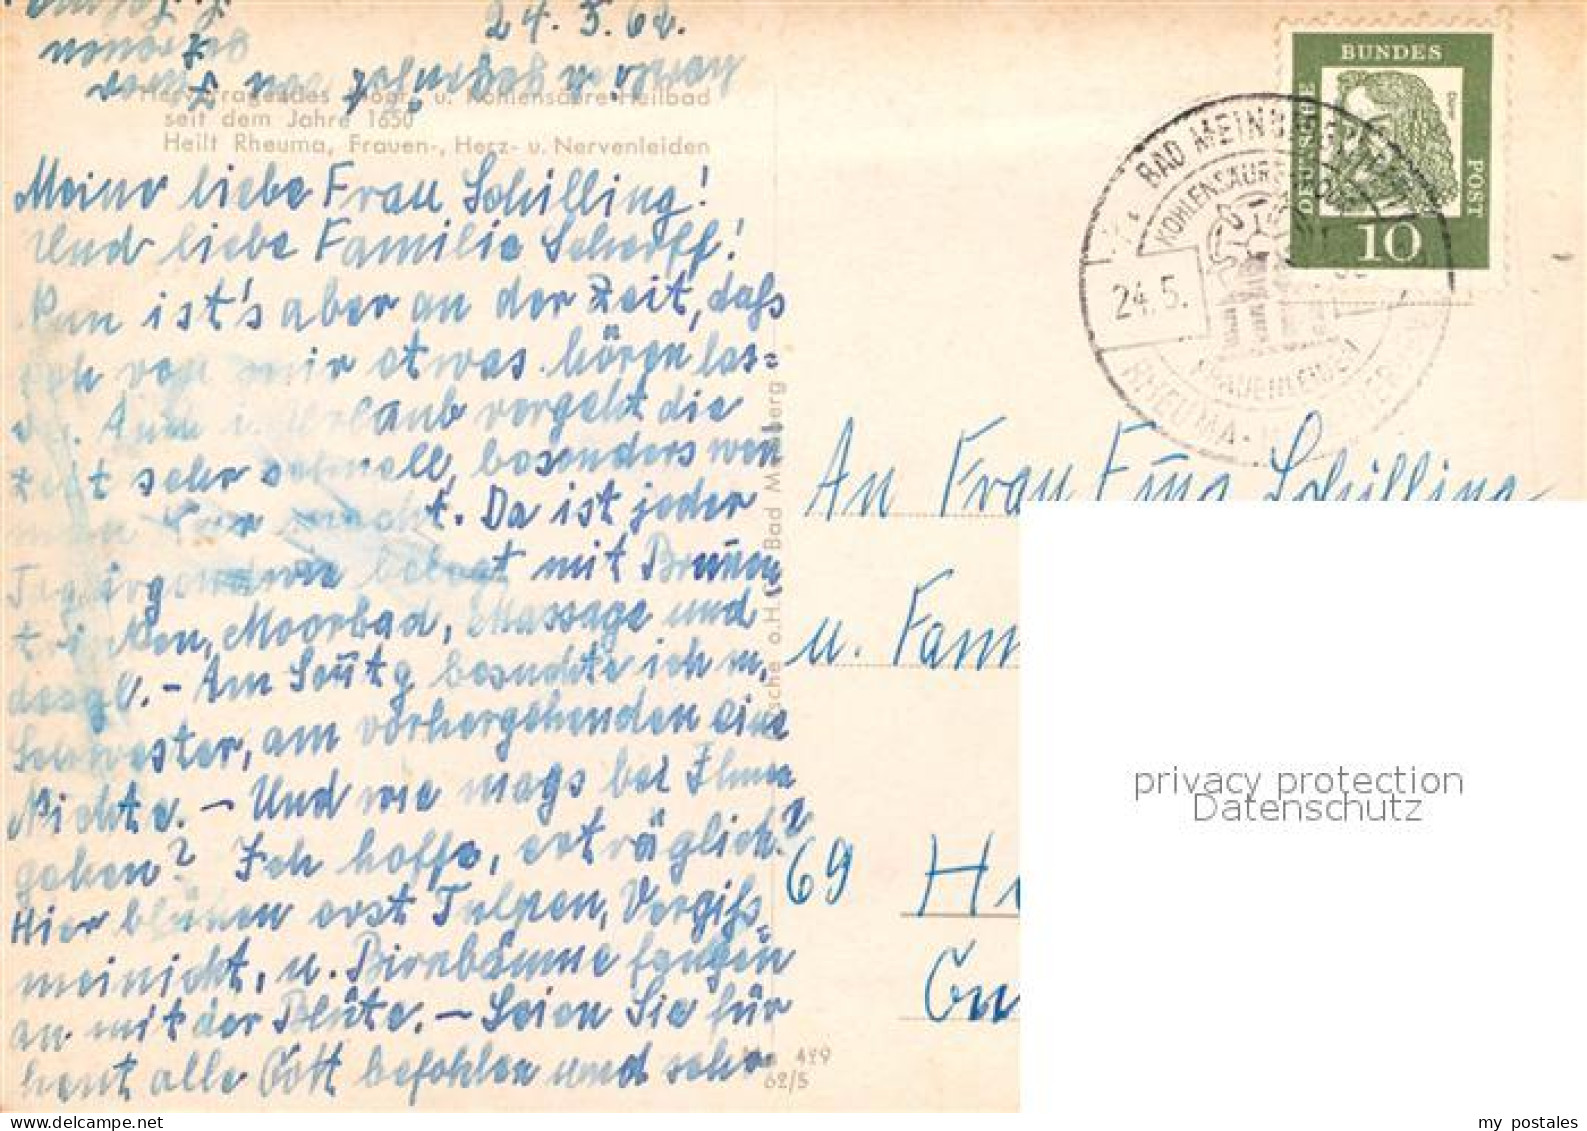 24. 5. 62.
Hervorragendes Moor- u. Kohlensäure-Heilbad
seit dem Jahre 1650
Heilt Rheuma, Frauen-, Herz- u. Nervenleiden
Meine liebe Frau Schilling!
Und liebe Familie Scherff!
Nun ist's aber an der Zeit, daß
ich von mir etwas hören las=
se. Auch i. Urlaub vergeht die
Zeit sehr schnell, besonders wen
man Kur macht. Da ist jeder
Tag irgendwie belegt mit Brunnen
trinken, Moorbad, Massage und
desgl. - Am Sontg besuchte ich m.
Schwester, am vorhergehenden eine
Nichte. - Und wie mags bei Ihnen
gehen? Ich hoffe, erträglich?
Hier blühen erst Tulpen, Vergiß=
meinicht, u. Birnbäume fangen
an mit der Blüte. - Seien Sie für
heut alle Gott befohlen und sehr
429
62/5
BUNDES
DEUTSCHE
POST
Dürer
10
BAD MEINB
KOHLENSÄURE
24.5.
FRAUENLEIDEN
RHEUMA
An Frau Schilling
u. Fam
69 H
privacy protection
Datenschutz
my postales